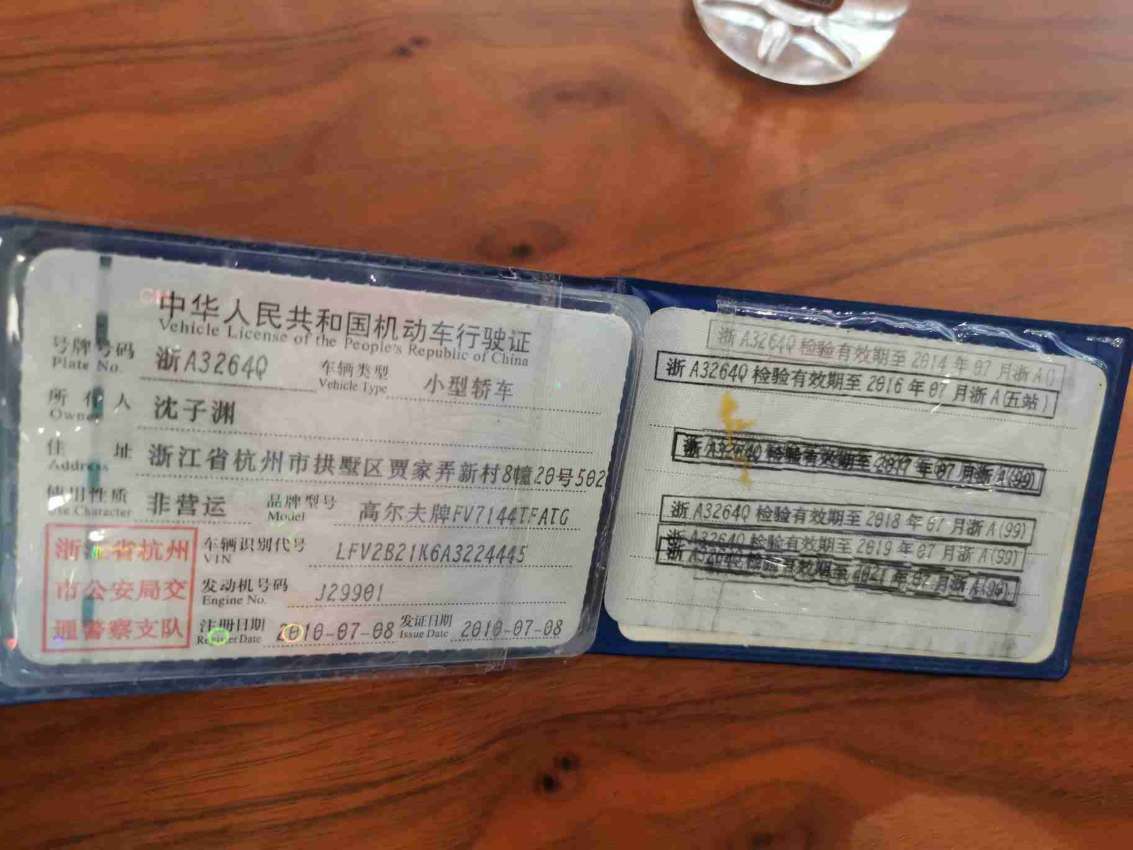 中华人民共和国机动车行驶证
Vehicle License of the People's Republic of China
号牌号码 浙A3264Q 车辆类型 小型轿车
Plate No. Vehicle Type
所有人 沈子渊
Owner
住址 浙江省杭州市拱墅区贾家弄新村8幢20号502
Address
使用性质 非营运 品牌型号 高尔夫牌FV7144TFATG
Use Character Model
浙江省杭州
市公安局交
通警察支队
车辆识别代号 LFV2B21K6A3224445
VIN
发动机号码 J29901
Engine No.
注册日期 2010-07-08 发证日期 2010-07-08
Register Date Issue Date
浙A3264Q检验有效期至2014年07月浙A
浙A3264Q检验有效期至2016年07月浙A(五站)
浙A3264Q检验有效期至2017年07月浙A(99)
浙A3264Q检验有效期至2018年07月浙A(99)
浙A3264Q检验有效期至2019年07月浙A(99)
浙A3264Q检验有效期至2021年07月浙A(99)